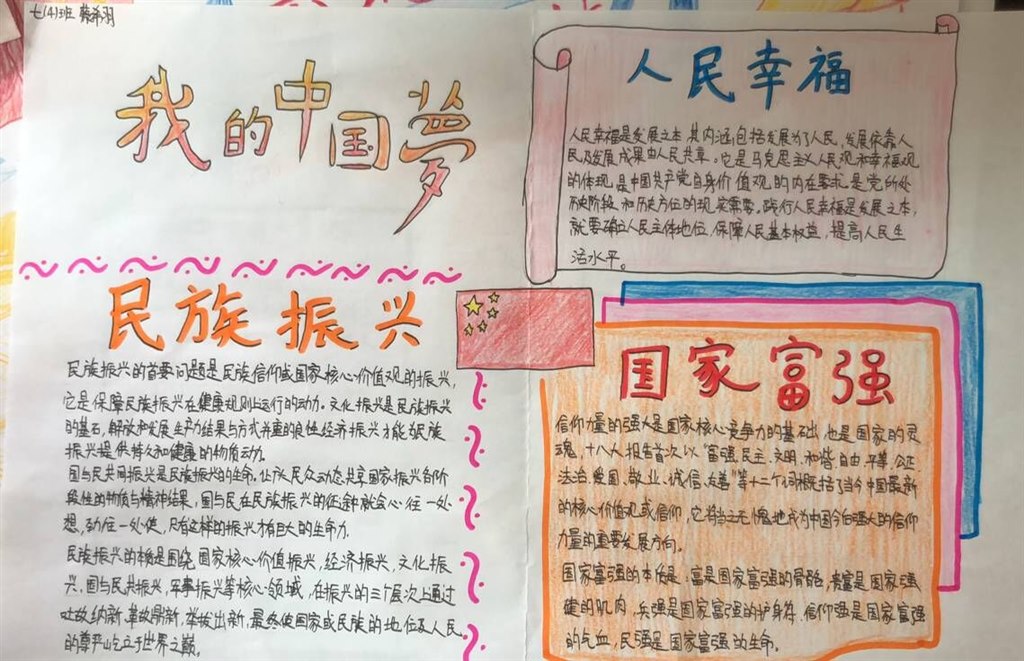 七(4)班 蔡希羽
我的中国夢
人民幸福
人民幸福是发展之本,其内涵包括发展为了人民,发展依靠人
民及发展成果由人民共享。它是马克思主义人民观和幸福观
的体现,是中国共产党自身价值观的内在要求,是党所处
历史阶段和历史方位的现实需要。践行人民幸福是发展之本,
就要确立人民主体地位,保障人民基本权益,提高人民生
活水平。
民族振兴
民族振兴的首要问题是民族信仰或国家核心价值观的振兴,
它是保障民族振兴在健康规则上运行的动力。文化振兴是民族振兴
的基石,解放和发展生产力结果与方式并重的良性经济振兴才能为民族
振兴提供持久和健康的物质动力。
国与民共同振兴是民族振兴的生命,让人民众动态共享国家振兴各阶
段性的物质与精神结果,国与民在民族振兴的征途中就会心往一处
想,劲往一处使,只有这样的振兴才有巨大的生命力.
民族振兴的核是围绕国家核心价值振兴,经济振兴,文化振
兴,国与民共振兴,军事振兴等核心领域,在振兴的三个层次上通过
吐故纳新,革故鼎新,举拔出新,最终使国家或民族的地位及人民
的尊严屹立于世界之巅。
国家富强
信仰力量的强大是国家核心竞争力的基础,也是国家的灵
魂,十八大报告首次以"富强,民主,文明,和谐,自由,平等,公正
法治,爱国,敬业,诚信,友善"等十二个词概括了当今中国最新
的核心价值观或信仰,它将当之无愧地成为中国今后强大的信仰
力量的重要发展方向。
国家富强的本质是:富是国家富强的骨骼, 是国家强
健的肌肉,兵强是国家富强的护身符,信仰强是国家富强
的气血,民强是国家富强的生命.